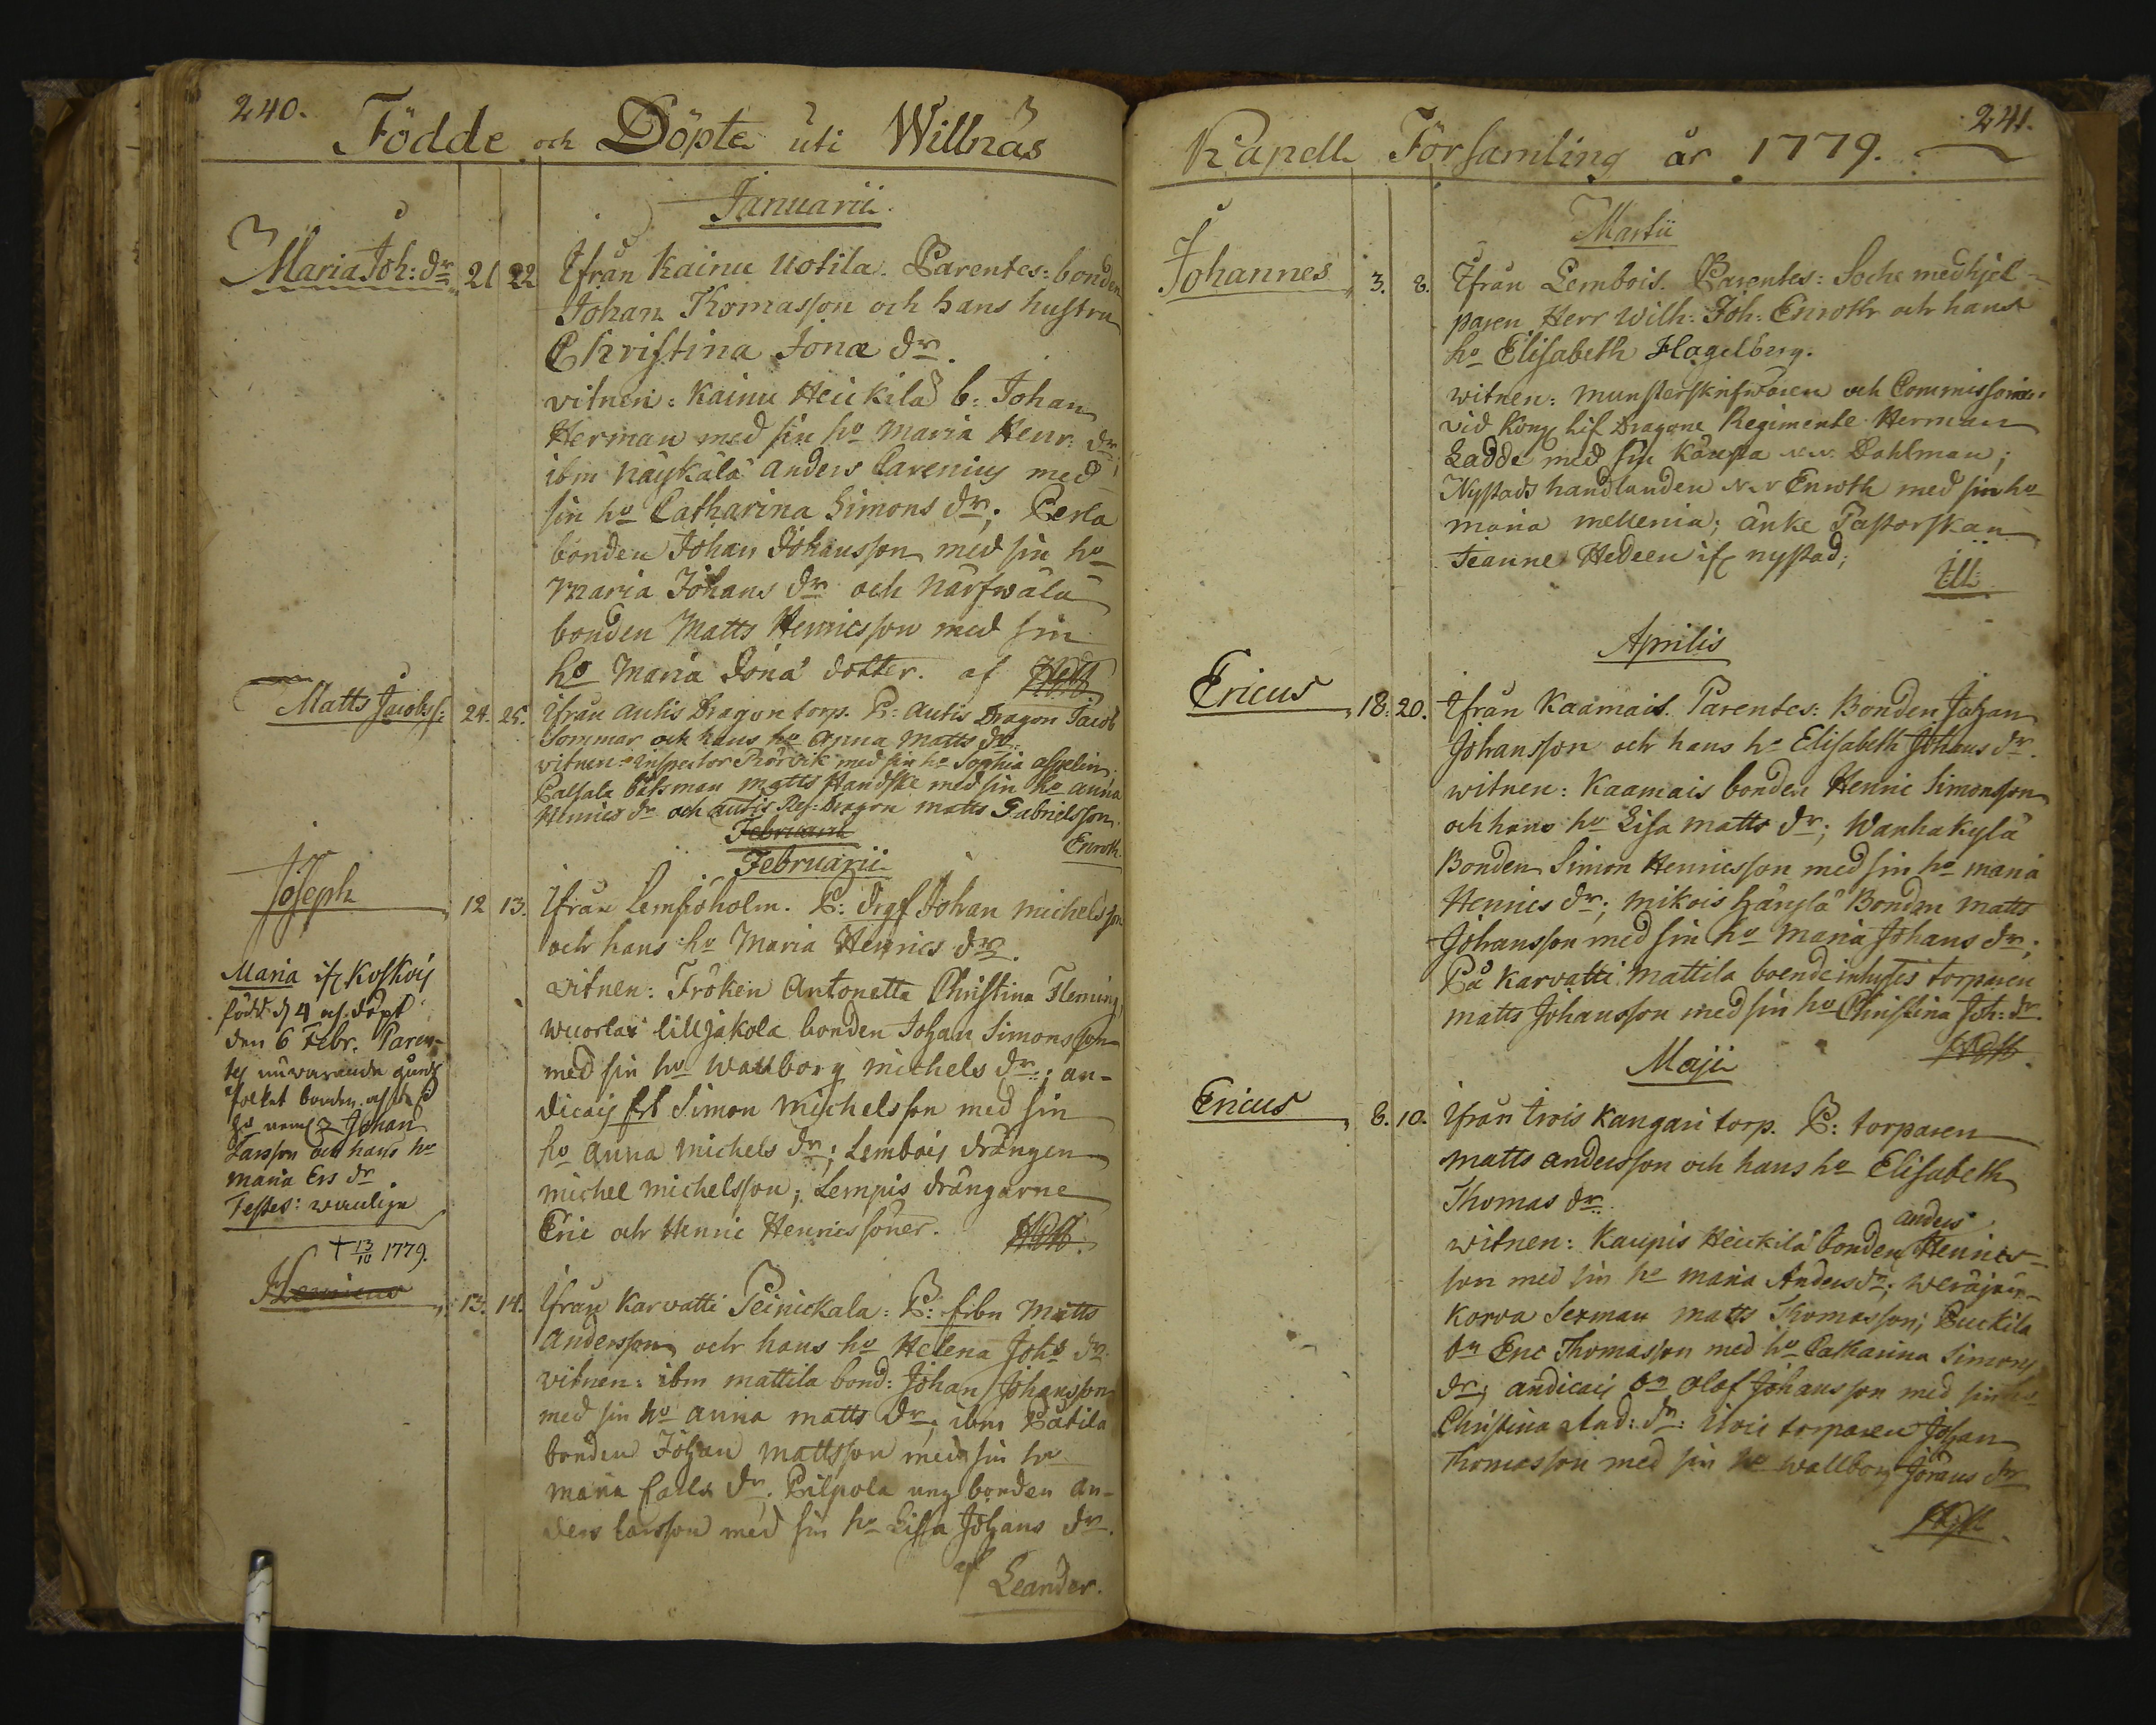 240.
Födde och Döpte uti Willnäs
Januarii
Maria Joh: dr 21 22 Ifrån Kainu Uotila. Parentes: bonden
Johan Thomasson och hans hustru
Christina Jonæ dr.
vitnen: Kainu Heickilä b: Johan
Herman med sin ho Maria Henr: dr;
ibm Näykälä Anders Carenius med
sin ho Catharina Simons dr; Perla
bonden Johan Johansson med sin ho
Maria Johans dr och Närfwälä
bonden Matts Henricsson med sin
ho Maria Jona dotter. af
Matts Jacobs: 24. 25. Ifrån Autis Dragon torp. P: Autis Dragon Jacob
Sommar och hans ho Anna Matts dr.
vitnen: inspector Rörvik med sin ho Sophia
båtsman Matts Handske med sin ho Anna
Henrics dr och Autis Res: Dragon Matts Gabrielsson.
Februarii
Enroth.
Februarii
Joseph 12 13. Ifrån Lempisholm. P: Johan Michelsson
och hans ho Maria Henrics dr.
vitnen: Fröken Antonetta Christina Fleming,
wuorlax lilljakola bonden Johan Simonsson
med sin ho Wallborg Michels dr; an-
dicais Simon Michelsson med sin
ho Anna Michels dr; Lembois drängen
Michel Michelsson; Lempis drängarne
Eric och Henric Henricssöner.
Maria if Koskois
född d 4 och döpt
den 6 Febr. Paren-
tes
folket bonden
Johan
Larsson och hans ho
Maria Ers dr
Testes: wanlige
† 13/10 1779.
Henricus 13. 14. Ifrån Karvatti Peinickala: P: Matts
Andersson och hans ho Helena Johs dr.
vitnen: ibm Mattila bond: Johan Johansson
med sin ho Anna Matts dr, ibm Pätilä
bonden Johan Mattsson med sin ho
Maria Carls dr. Pilpola ung bonden An-
ders Larsson med sin ho Lisa Johans dr.
af Leander.
241.
Kapell Församling år 1779.
Martii
Johannes 3. 8. Ifrån Lembois. Parentes: Socke medhjel-
paren Herr Wilh: Joh: Enroth och hans
ho Elisabeth Hagelberg.
witnen: munsterskrifwaren och Commissarien
vid Kong Lif Dragone Regimente Herman
Ladde med sin Käresta Dahlman;
Nystads handlanden Enroth med sin ho
Maria Mellenia; änke Pastorskan
Jeanne Hedeen if Nystad;
Aprilis
Ericus 18. 20. Ifrån Kaamais. Parentes: Bonden Johan
Johansson och hans ho Elisabeth Johans dr.
witnen: Kaamais bonden Henric Simonsson
och hans ho Lisa Matts dr; Wanhakylä
Bonden Simon Henricsson med sin ho Maria
Henrics dr; Mikois Bonden Matts
Johansson med sin ho Maria Johans dr;
På Karvatti Mattila boende inhyses torparen
Matts Johansson med sin ho Christina Joh: dr.
Maji
Ericus 8. 10. Ifrån Irois Kangari torp. P: torparen
Matts Andersson och hans ho Elisabeth
Thomas dr.
anders
witnen: Kaupis Heickilä bonden Henrics-
son med sin ho Maria Anders dr;
korva Sexman Matts Thomasson; Puckila
bn Eric Thomasson med ho Catharina Simons
dr; andicais bn Olof Johansson med sin ho
Christina And: dr: Irois torparen Johan
Thomasson med sin ho Wallborg Jörans dr